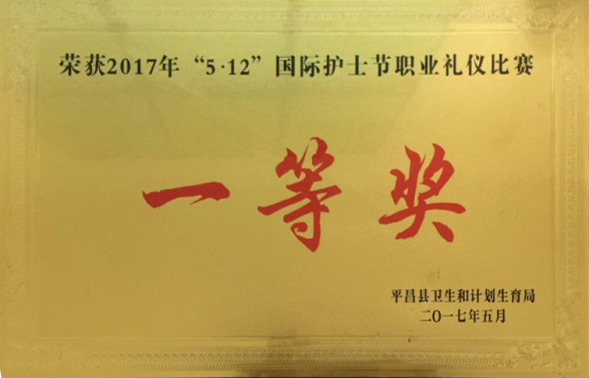 荣获2017年“5·12”国际护士节职业礼仪比赛
一等奖
平昌县卫生和计划生育局
二〇一七年五月